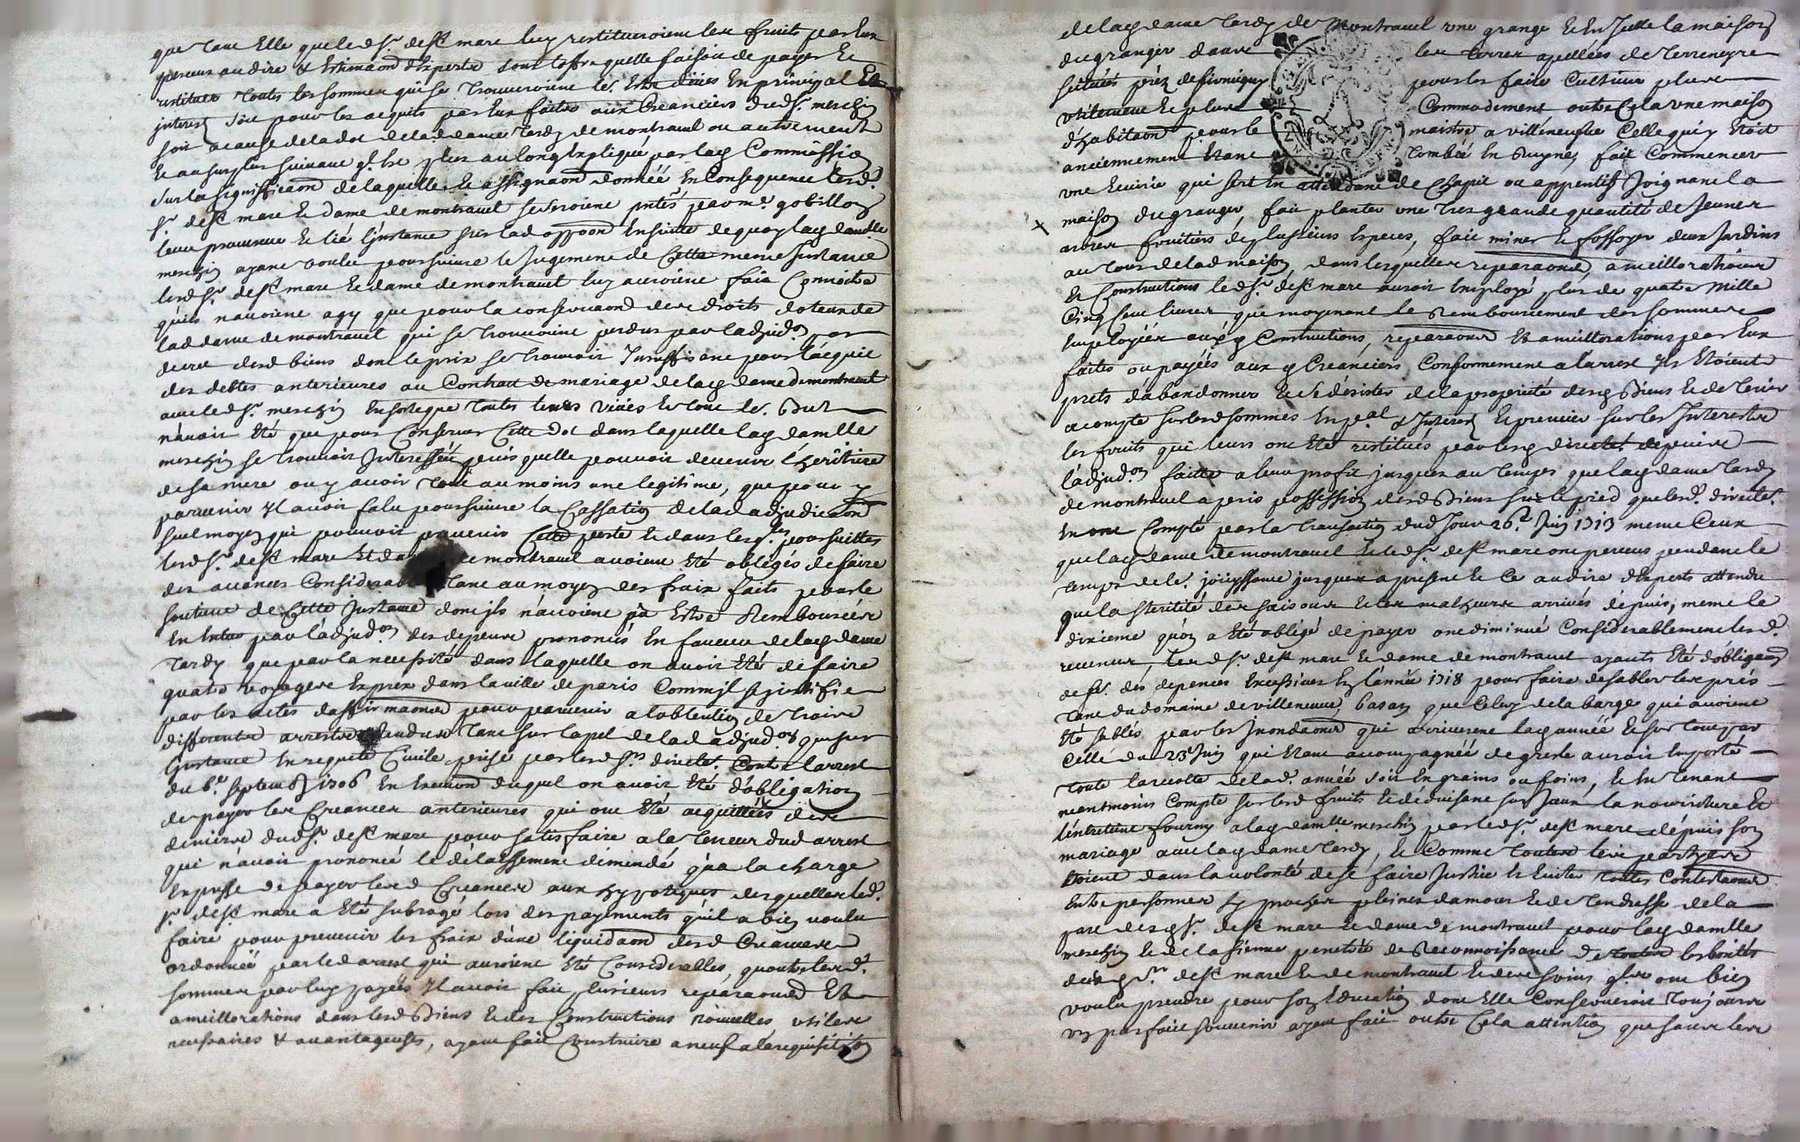 que tant Elle que led. Sr. de St. mare luy restitueroient les fruits par Eux
perceus au dire & Estimaon d'Experts sous l'offre quelle faisoit de payer Et
restituer toutes les sommes qui se trouveroient le. Estre dües En principal Et
interest soit pour les acquits par Eux faites aux Creanciers dud. Sr. meschin
soit a cause de la dot de lad. dame tardy de montravel ou autrement
Et au surplus suivant qu'il est plus au long Expliqué par lad. Commission
Sur la signiffication de laquelle Et assignaon donnée En Consequence lesd.
Sr. de St. mare Et dame de montravel se seroient pntés par me. gobillon
leur procureur Et lié l'jnstance sur lad. oppoon Ensuitte de quoy lad. damlle
meschin ayant voulu poursuivre le Jugement de Cette meme jnstance
lesd. Sr. de St. mare Et dame de montravel luy auroient fait Connoitre
qu'ils n'avoient agy que pour la conservaon des droits dotaux de
lad. dame de montravel qui se trouvoient perdus par l'adjudon par
decret desd. biens dont le prix se trouvoit Jnsuffisant pour l'acquit
des debtes anterieures au Contract de mariage de lad. dame de montravel
avec led. Sr. meschin En sorte que toutes leurs vües Et tout le. But
n'avoit Eté que pour Conserver Cette dot dans laquelle lad. damlle
meschin se trouvoit Jnteressée puis quelle pouvoit devenir l'heritiere
de sa mere ou y avoir tout au moins une legitime, que pour y
parvenir Il avoit falu poursuivre la Cassation de lad. adjudicaon
seul moyen qui pouvoit prevenir Cette perte Et dans lesqlles poursuittes
lesd. Sr. de St. mare Et dame de montravel avoient Eté obligés de faire
des avances Considerables tant au moyen des frais faits pour le
soutient de Cette jnstance dont jls n'avoient pû Estre Remboursées
En Entier par l'adjudon des depens prononcés En faveur de lad. dame
tardy que par la necessité dans laquelle on avoit Eté de faire
quatre voyages Exprez dans la ville de paris Comme jl se justifie
par les actes d'affirmaons pour parvenir a l'obtention de trois
differents arrests Rendus tant sur l'apel de lad. adjudon que sur
l'jnstance En requete Civile prise par lesd. Srs. directrs. Contre l'arrest
du 6e. septembre 1706 En Execuon duquel on avoit Eté d'obligation
de payer les Creances anterieures qui ont Eté acquittées des
deniers dud. Sr. de St. mare pour satisfaire a la teneur dud. arrest
qui n'avoit prononcé le delaissement demandé qu'a la charge
Expresse de payer lesd. Creances aux hypoteques desquelles led.
Sr. de St. mare a Eté subrogé lors des payements qu'il a bien voulu
faire pour prevenir les frais d'une liquidaon desd. Creances
ordonnée par led. arrest qui auroient Eté Considerables, qu'outre lesd.
sommes par luy payées Il avoit fait plusieurs reparaons Et
ameillorations dans lesd. Biens Et des Constructions nouvelles utiles
necessaires & avantageuses, ayant fait Construire a neuf a la requisition
de lad. dame tardy de Montravel une grange Et En Icelle la maison
du granger dans les terres apellées de terreneyre
scituées prez de firmigny pour les faire Cultiver plus
utilement Et plus Commodement outre Cela une maison
d'habitaon pour le maitre a villeneufve Celle qui y Etoit
anciennement Etant tombée En Ruyne, fait Commencer
une Ecurie qui sert En attendant de Chapit ou appentif Joignant la
maison du granger, fait planter une tres grande quantité de Jeunes
arbres fruitiers de plusieurs Especes, fait miner Et fossoyer deux Jardins
au tour de lad. maison dans lesquelles reparaons, ameillorations
Et Constructions led. Sr. de St. mare auroit Employé plus de quatre Mille
Cinq Cent livres que moyenant le Remboursement des sommes
Employées auxd. Constructions, reparaons Et ameillorations par Eux
faites ou payées aux d. Creanciers Conformement a l'arrest Ils Etoient
prets d'abandonner Et se desister de la proprieté desd. Biens Et de tenir
acompte sur lesd. sommes En pcal & Interest Et premier sur les Interests
les fruits qui leurs ont Eté restitués par lesd. directrs. depuis
l'adjudon faitte a leur profit jusques au temps que lad. dame tardy
de montravel a pris possession desd. Biens sur le pied que lesd. directrs.
En ont Compté par la transaction dud. Jour 26e. Juin 1713 meme Ceux
que lad. dame de montravel Et led. Sr. de St. mare ont perceus pendant le
temps de le. joüyssance jusques a present Et Ce au dire d'Experts attendu
que la sterilité des saisons Et les malheurs arrivés depuis, meme le
dixieme qu'on a Eté obligé de payer ont diminué Considerablement lesd.
revenus, lesd. Sr. de St. mare Et dame de montravel ayants Eté d'obligaon
de fe. des depences Excessives En l'année 1718 pour faire desabler les prés
tant du domaine de villeneuve, basan que Celuy de la barge qui avoient
Eté sablés par les Inondaons qui arriverent lad. année Et sur tout par
Celle du 25e Juin qui Etant accompagnée de gresle auroit Emporté
toute la recolte de lad. année soit En grains ou foins, Et En tenant
neantmoins Compte sur lesd. fruits Et déduisant sur Jceux la nourriture Et
l'entretient fourny a lad. damlle. meschin par led. Sr. de St. mare depuis son
mariage avec lad. dame tardy, Et Comme toutes les parties
Etoient dans la volonté de se faire Justice Et Eviter toutes Contestaons
Entre personnes sy proches pleines d'amour Et de tendresse de la
part desd. Sr. de St. mare Et dame de montravel pour lad. damlle
meschin Et de la sienne penetrée de Reconnoissance de toutes les bontés
desd. Sr. de St. mare Et de montravel Et des soins qls. ont bien
voulu prendre pour son Education dont Elle Conservera toujours
un parfait souvenir ayant fait outre Cela attention que sans les